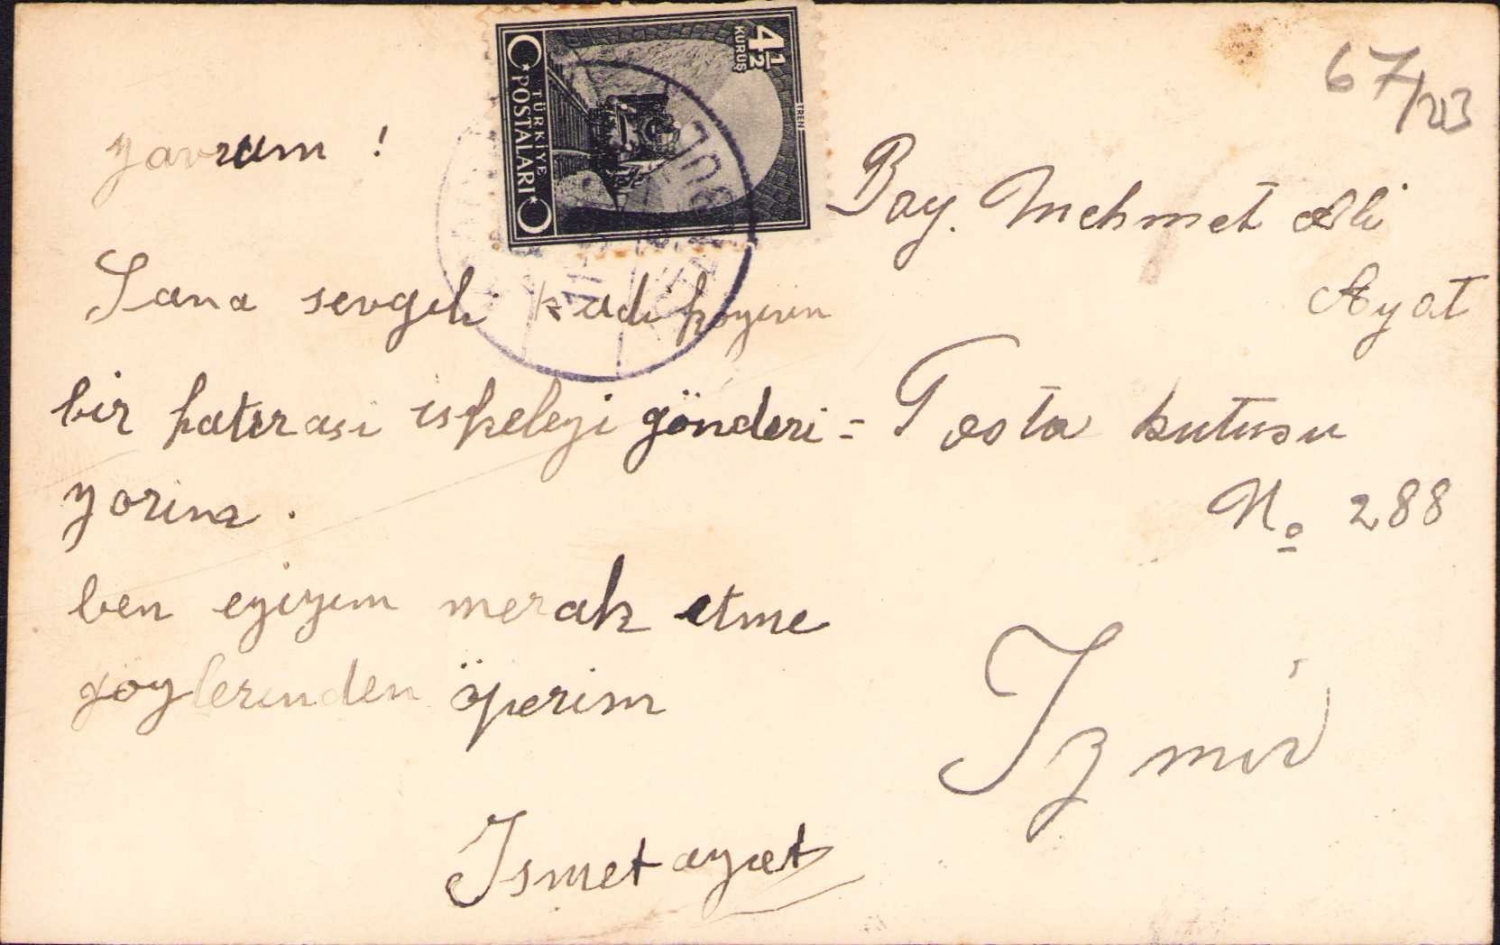 67/213
4 1/2
KURUŞ
TÜRKİYE
POSTALARI
yavrum !
Sana sevgili kadi köyün
bir hatırası iskeleyi gönderi =
yorum .
ben eyiyim merak etme
gözlerinden öperim
Ismet ayat
Bay. Mehmet Ali
Ayat
Posta kutusu
No 288
Izmir